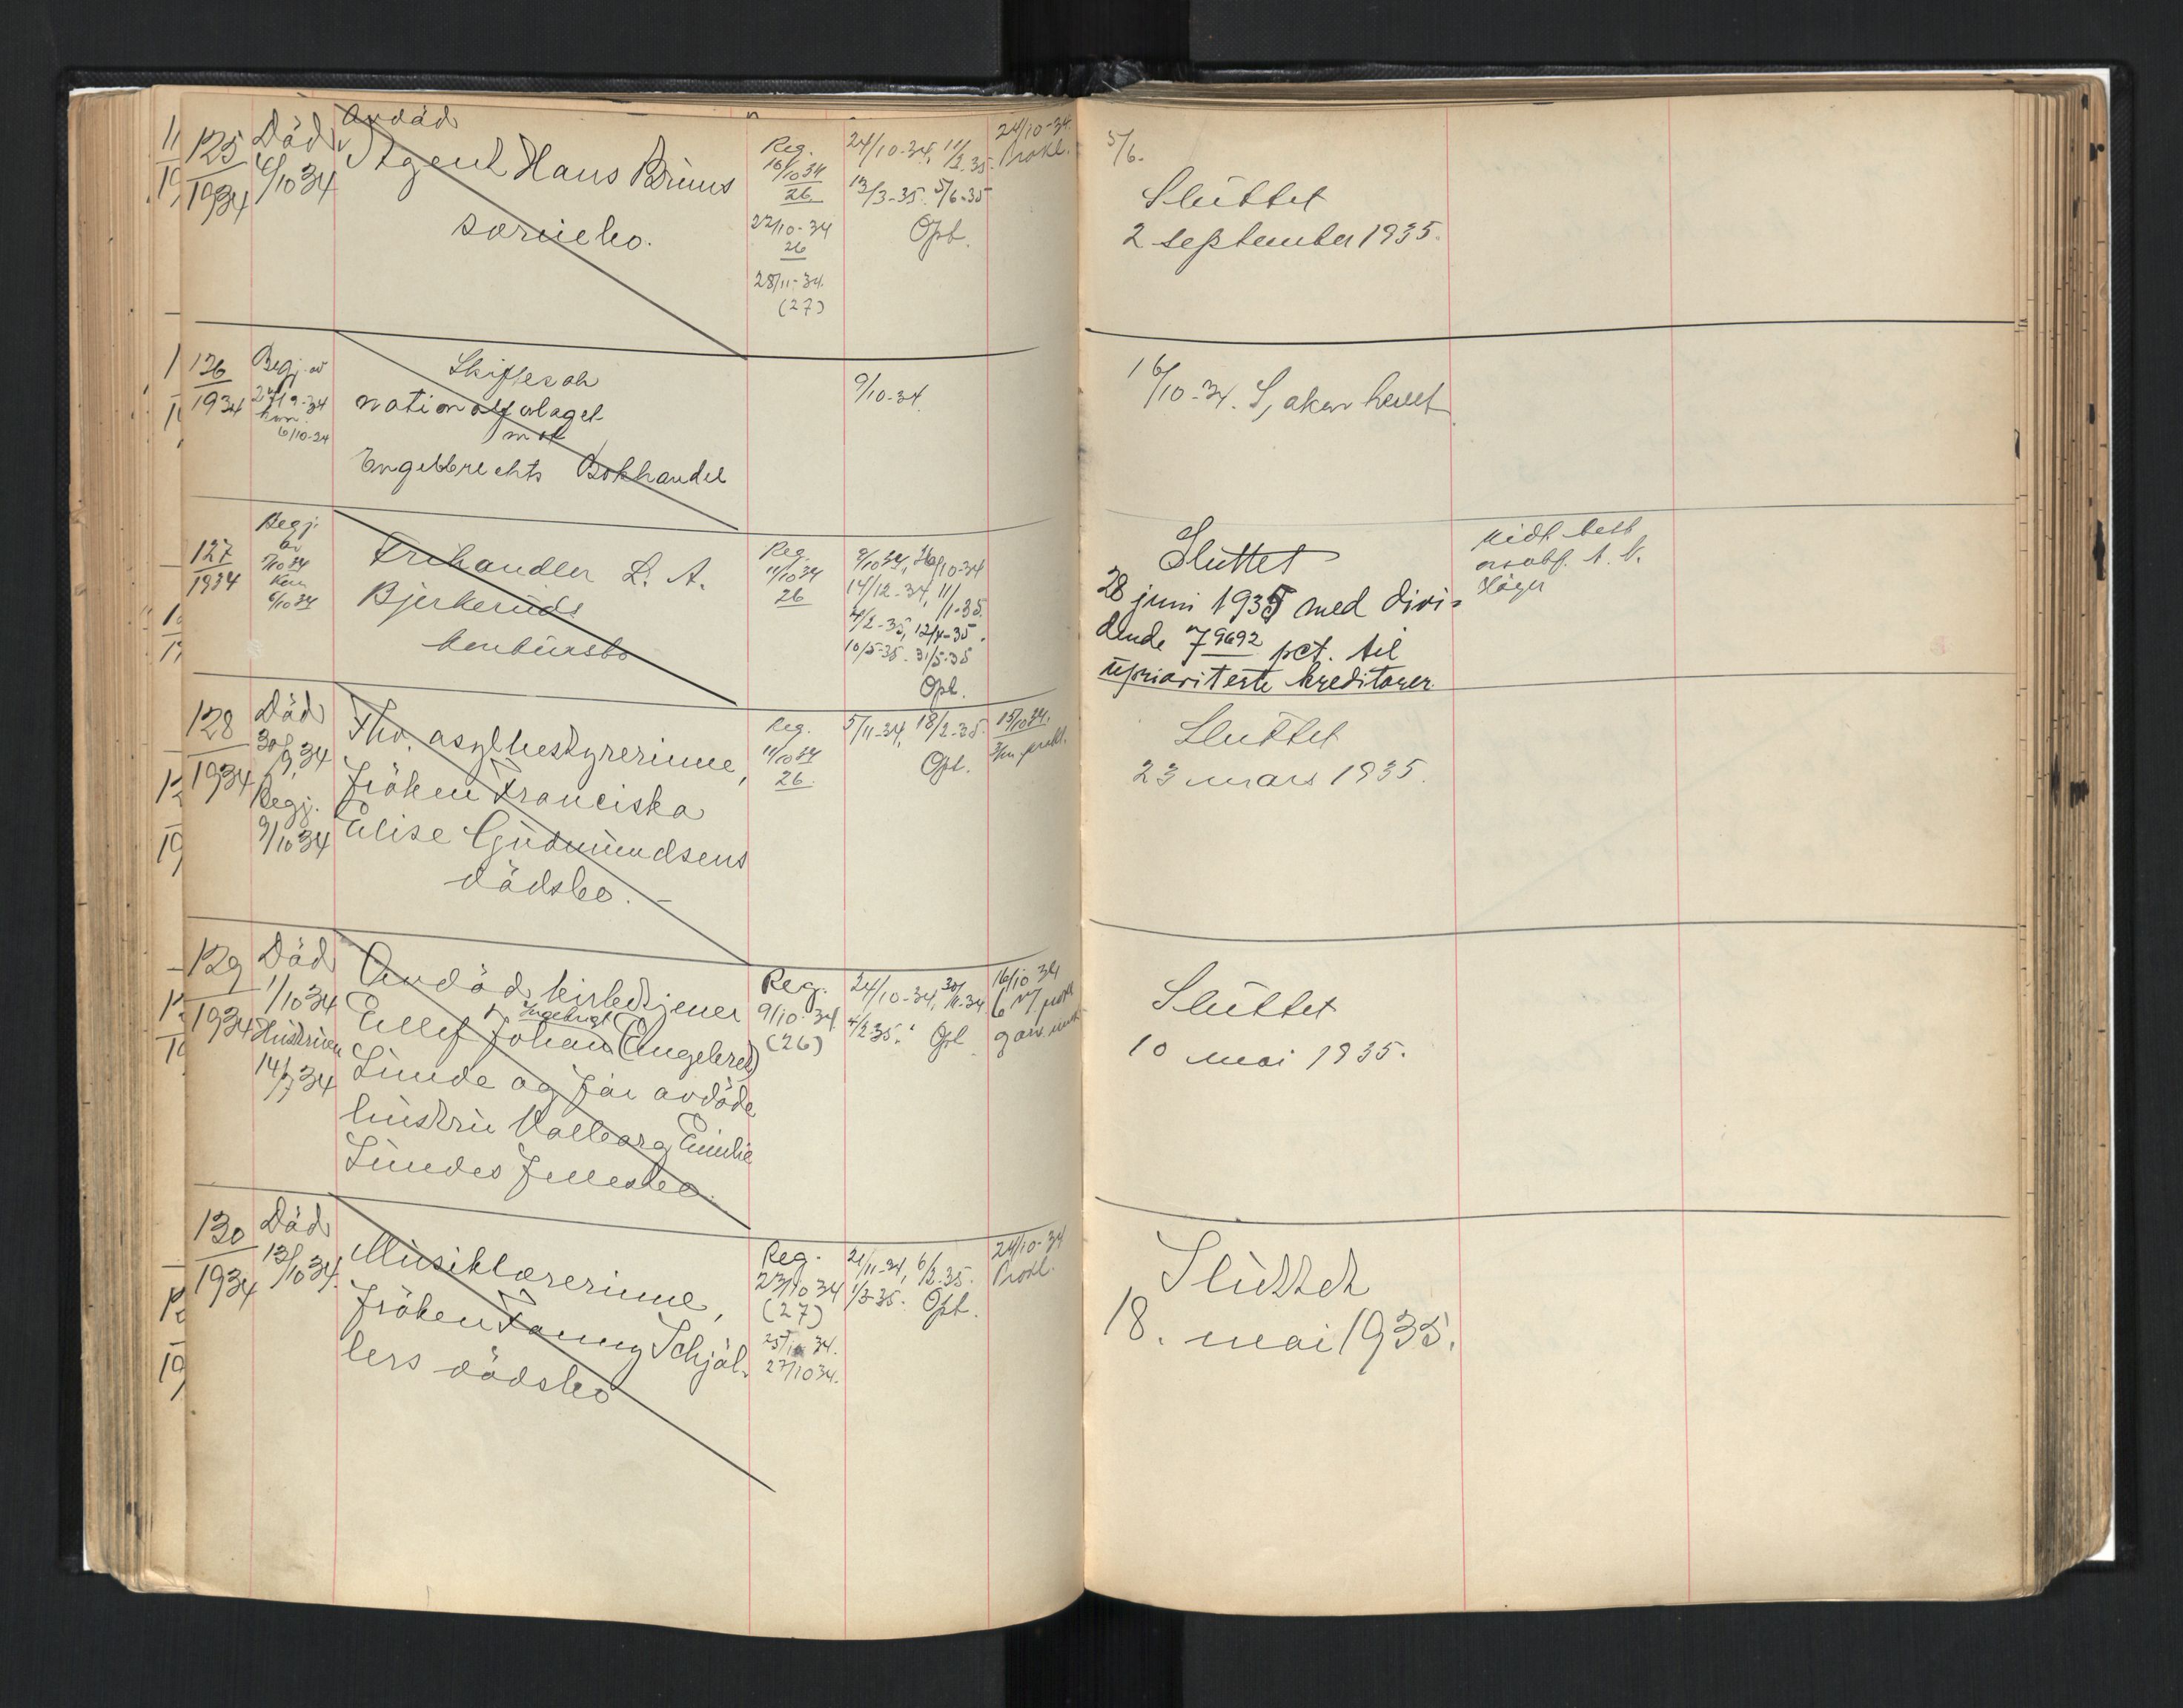 125
1934
Död
6/10 34
Avdöd
Agent Hans Bruns
særuebo.
Reg.
16/10 34
26
22/10-34
26
28/11-34.
(27)
24/10-34, 11/2.35.
13/3-35. 5/6-35
Opb.
24/10-34.
Prokl.
5/6.
Sluttet
2 september 1935.
126
1934
Begj. av
27/9-34
kom.
6/10-34
Skiftesak
nationalforlaget
mot
Engelbrechts Bokhandel
9/10-34.
16/10-34. S, aken hevet
127
1934
Begj.
av
5/10 34
Kom
6/10 34
Trehandler L. A.
Bjerkeruds
konkursbo
Reg.
11/10 34
26
9/10 34, 26/10-34
14/12-34, 11/1-35.
4/2-35, 12/4-35.
10/5-35. 31/5-35
Opb.
Sluttet
28 juni 1935 med divi-
dende 7 9692 pct. til
uprioriterte kreditorer.
midl. best
Höyer
128
1934
Död
30/9 34
Begj.
9/10 34
Fhv. asylbestyrerinne,
fröken Franciska
Elise Gudmundsens
dödsbo.
Reg.
11/10 34
26.
5/11-34, 18/2-35.
Opb.
15/10 34.
3/m. prokl.
Sluttet
23 mars 1935.
129
1934
Död
1/10 34
Hustruen
14/7 34
Avdöd kirketjener
Ingebrigt
Ellef Johan (Engebret)
Lunde og før avdöde
hustru Valborg Emilie
Lundes fellesbo.
Reg.
9/10-34.
(26)
24/10-34, 30/11-34
4/2 35. Opb
16/10 34
6 m/ prokl
Sluttet
10 mai 1935.
130
1934
Död
13/10 34.
Musiklærerinne,
fröken Fanny Schjöl-
lers dödsbo
Reg.
23/10 34
(27)
25/10 34.
27/10 34.
21/11-34, 6/2-35.
1/3-35. Opb.
24/10-34
Prokl.
Sluttet
18. mai 1935.